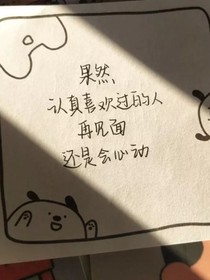 果然
认真喜欢过的人
再见面
还是会心动